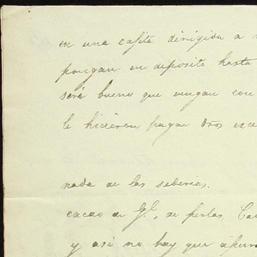 en una cajita dirigida a
pongan en deposito hasta
será bueno que vengan con
le hicieron pagar dros
nada de las
cacao de de perlas
y así no hay que